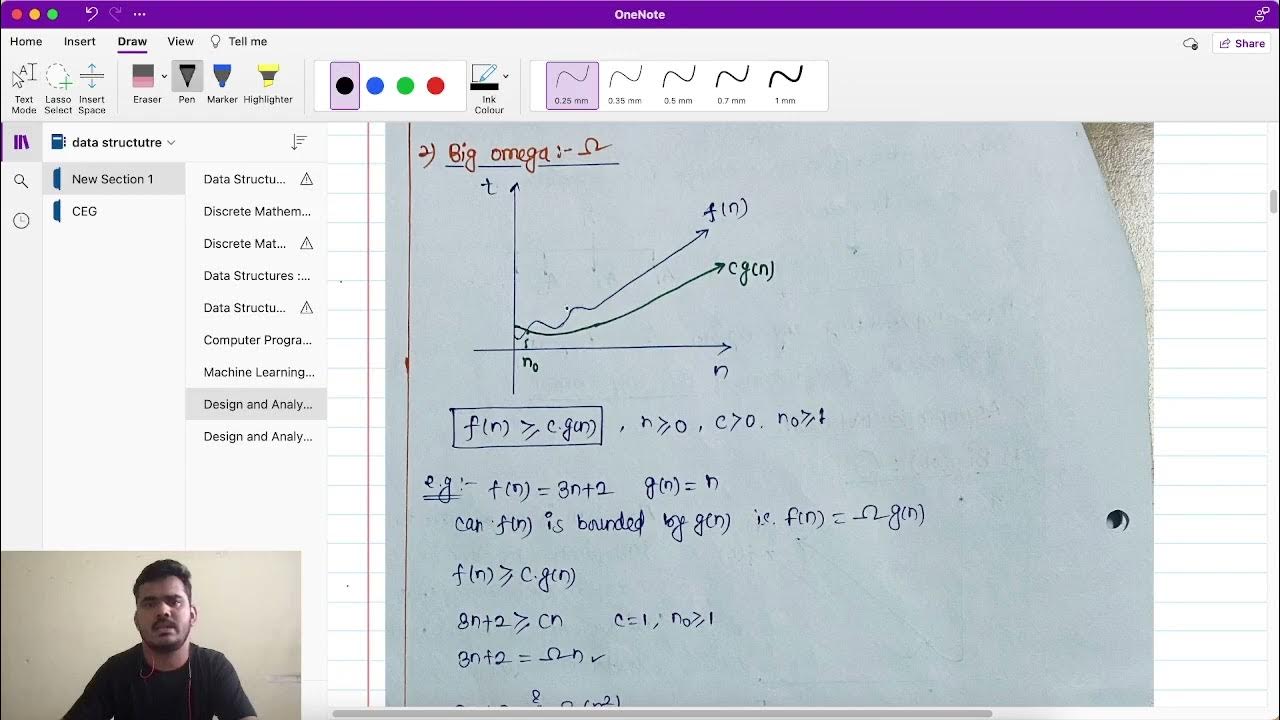 OneNote
Home Insert Draw View Tell me
Share
Text Mode
Lasso Select
Insert Space
Eraser
Pen
Marker
Highlighter
Ink Colour
0.25 mm 0.35 mm 0.5 mm 0.7 mm 1 mm
data structutre
New Section 1
CEG
Data Structu...
Discrete Mathem...
Discrete Mat...
Data Structures :...
Data Structu...
Computer Progra...
Machine Learning...
Design and Analy...
Design and Analy...
2) Big omega :- Ω
t
f(n)
cg(n)
n₀
n
f(n) ≥ c.g(n) , n≥0 , c>0. n₀≥1
e.g :- f(n) = 3n+2 g(n) = n
can f(n) is bounded by g(n) ie. f(n) = Ω g(n)
f(n) ≥ c.g(n)
3n+2 ≥ cn c=1 ; n₀≥1
3n+2 = Ωn ✓